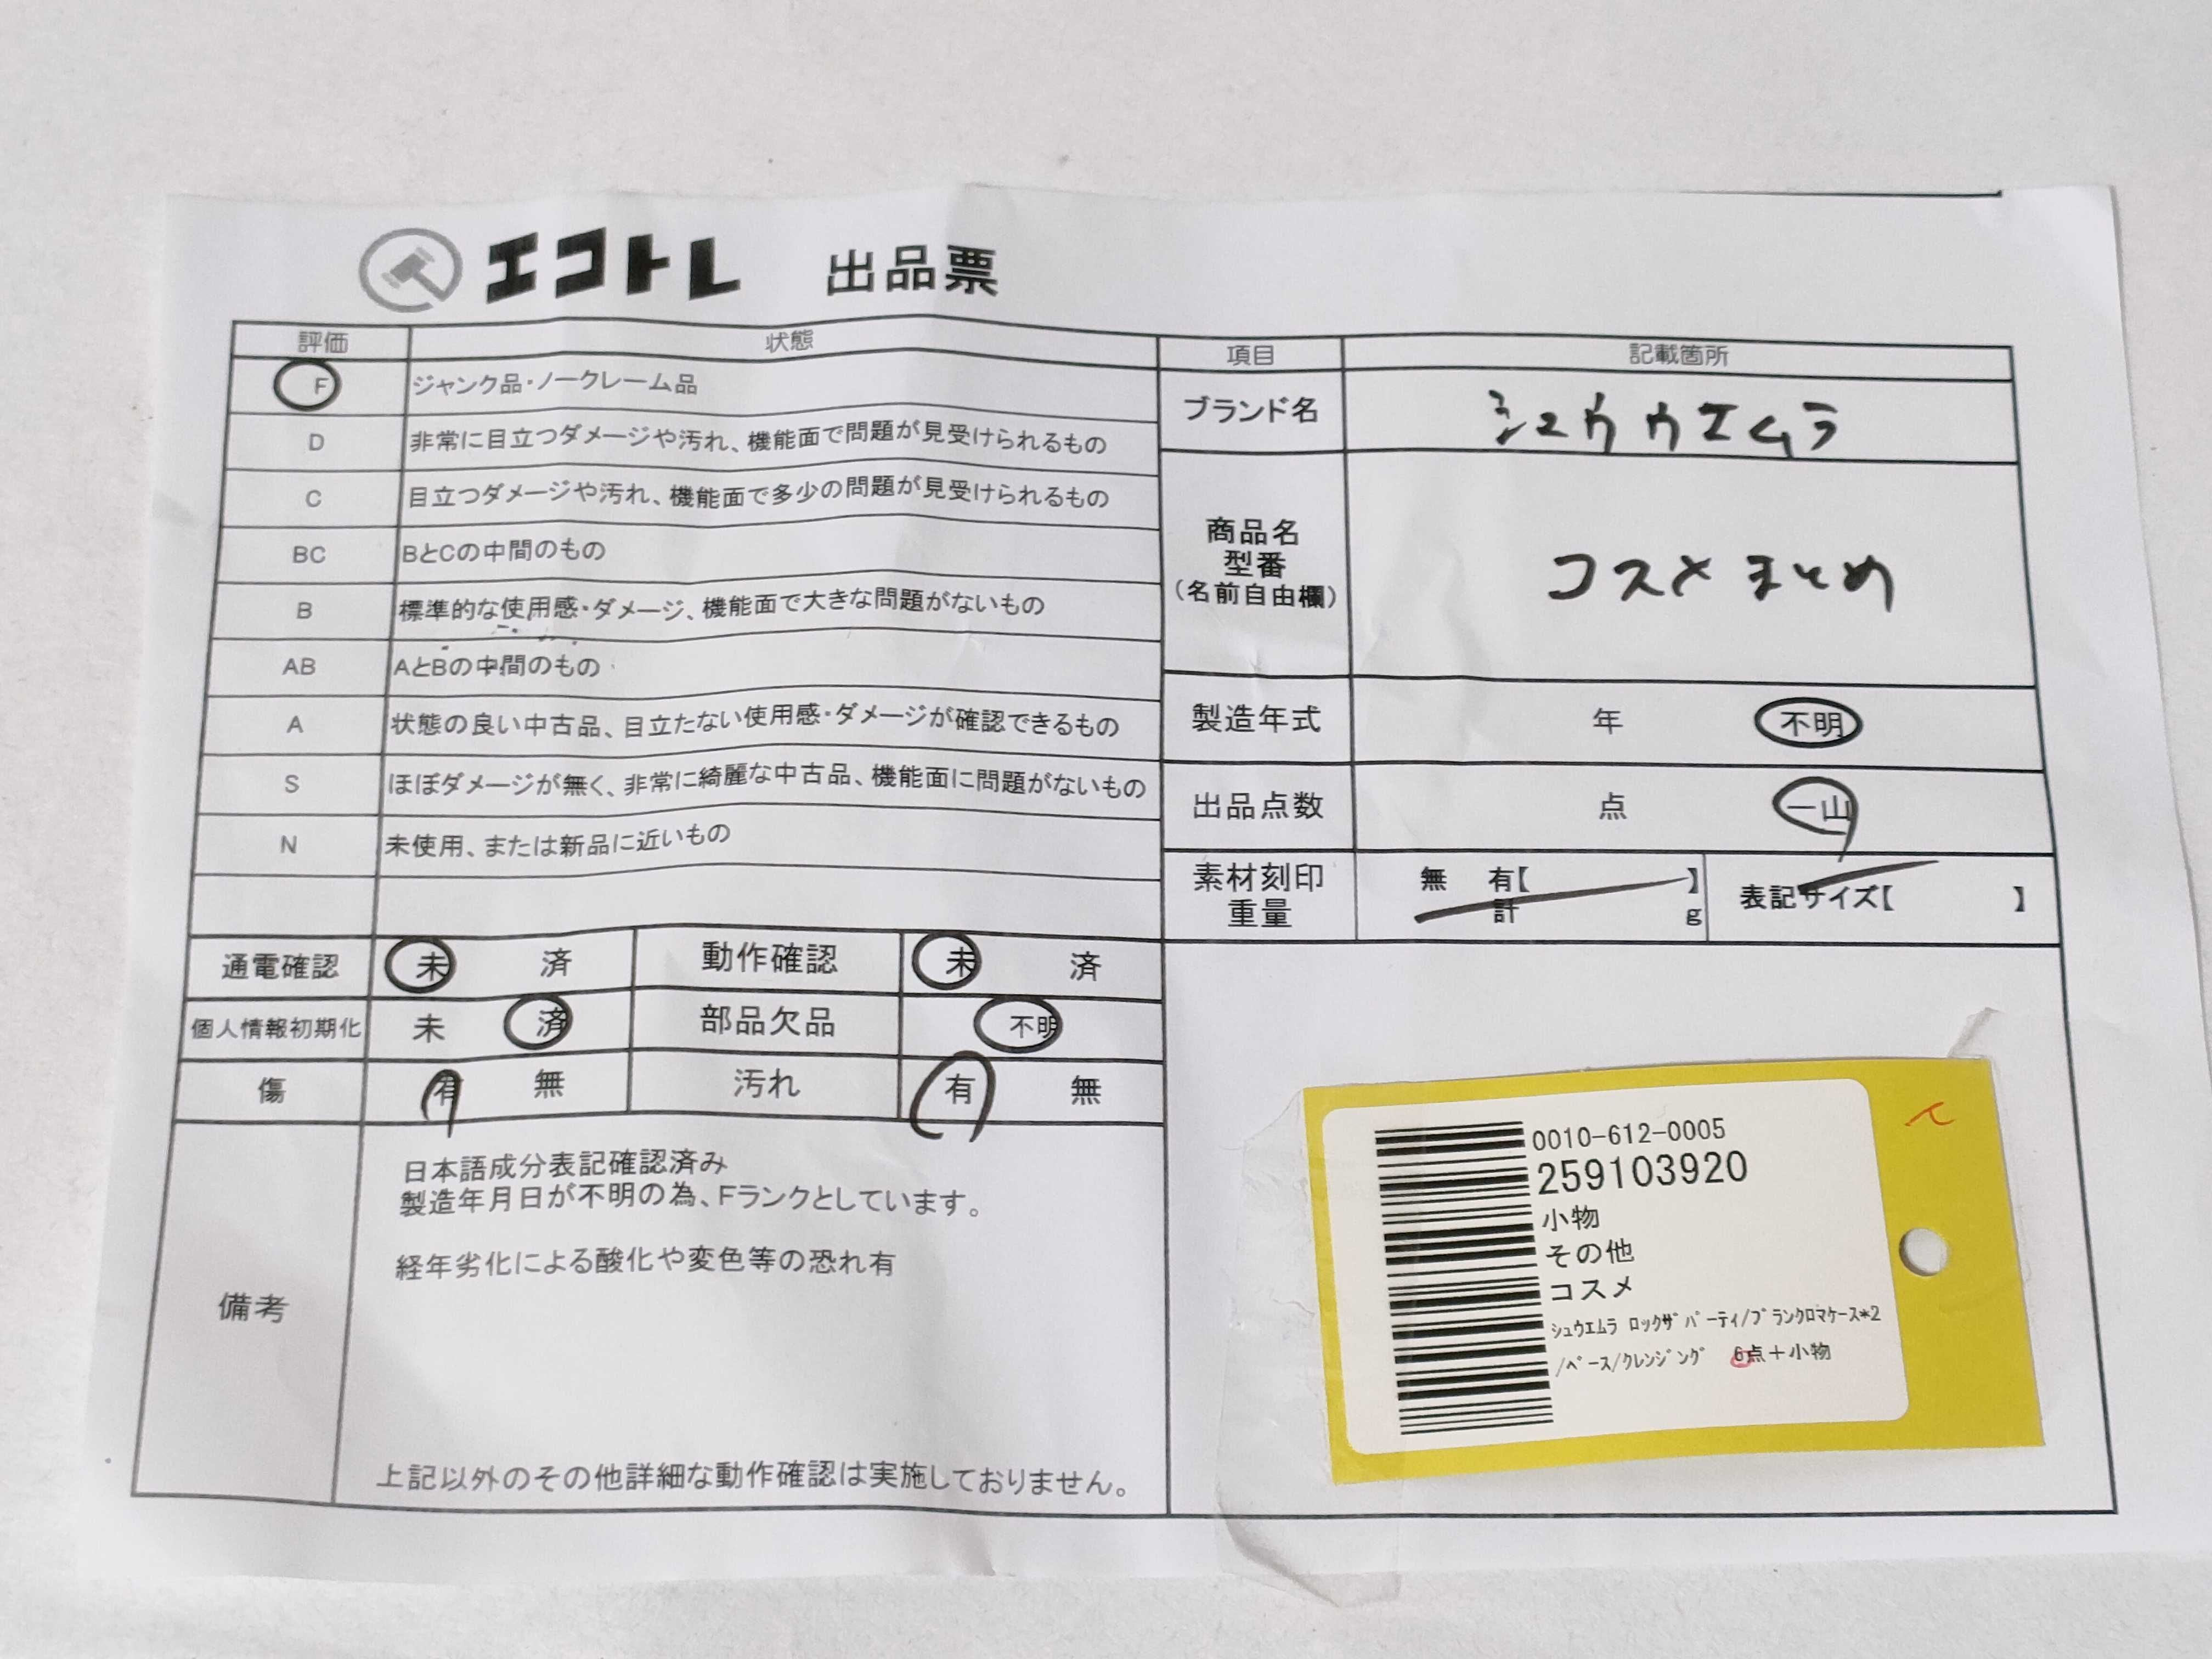 エコトレ 出品票
評価 状態
F ジャンク品・ノークレーム品
D 非常に目立つダメージや汚れ、機能面で問題が見受けられるもの
C 目立つダメージや汚れ、機能面で多少の問題が見受けられるもの
BC BとCの中間のもの
B 標準的な使用感・ダメージ、機能面で大きな問題がないもの
AB AとBの中間のもの
A 状態の良い中古品、目立たない使用感・ダメージが確認できるもの
S ほぼダメージが無く、非常に綺麗な中古品、機能面に問題がないもの
N 未使用、または新品に近いもの
通電確認 未 済 動作確認 未 済
個人情報初期化 未 済 部品欠品 不明
傷 有 無 汚れ 有 無
備考
日本語成分表記確認済み
製造年月日が不明の為、Fランクとしています。
経年劣化による酸化や変色等の恐れ有
上記以外のその他詳細な動作確認は実施しておりません。
項目 記載箇所
ブランド名 シュウウエムラ
商品名
型番
(名前自由欄)
コスメまとめ
製造年式 年 不明
出品点数 点 一山
素材刻印 無 有【 】 表記サイズ【 】
重量 計 g
0010-612-0005
259103920
小物
その他
コスメ
シュウエムラ ロックザパーティ/ブランクロマケース*2
/ベース/クレンジング 6点+小物